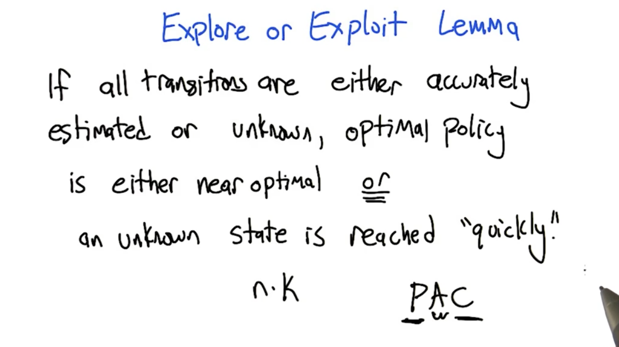 Explore or Exploit Lemma
If all transitions are either accurately
estimated or unknown, optimal policy
is either near optimal or
an unknown state is reached "quickly!"
n·k PAC